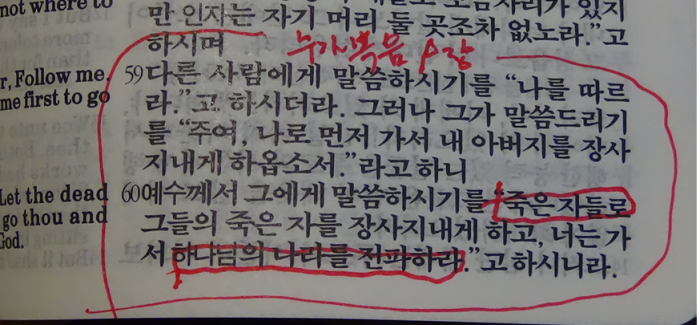 not where to
만 인자는 자기 머리 둘 곳조차 없노라.”고
하시며
누가복음 9장
r, Follow me.
me first to go
59 다른 사람에게 말씀하시기를 “나를 따르
라.”고 하시더라. 그러나 그가 말씀드리기
를 “주여, 나로 먼저 가서 내 아버지를 장사
지내게 하옵소서.”라고 하니
Let the dead
go thou and
God.
60 예수께서 그에게 말씀하시기를 “죽은 자들로
그들의 죽은 자를 장사지내게 하고, 너는 가
서 하나님의 나라를 전파하라.”고 하시니라.